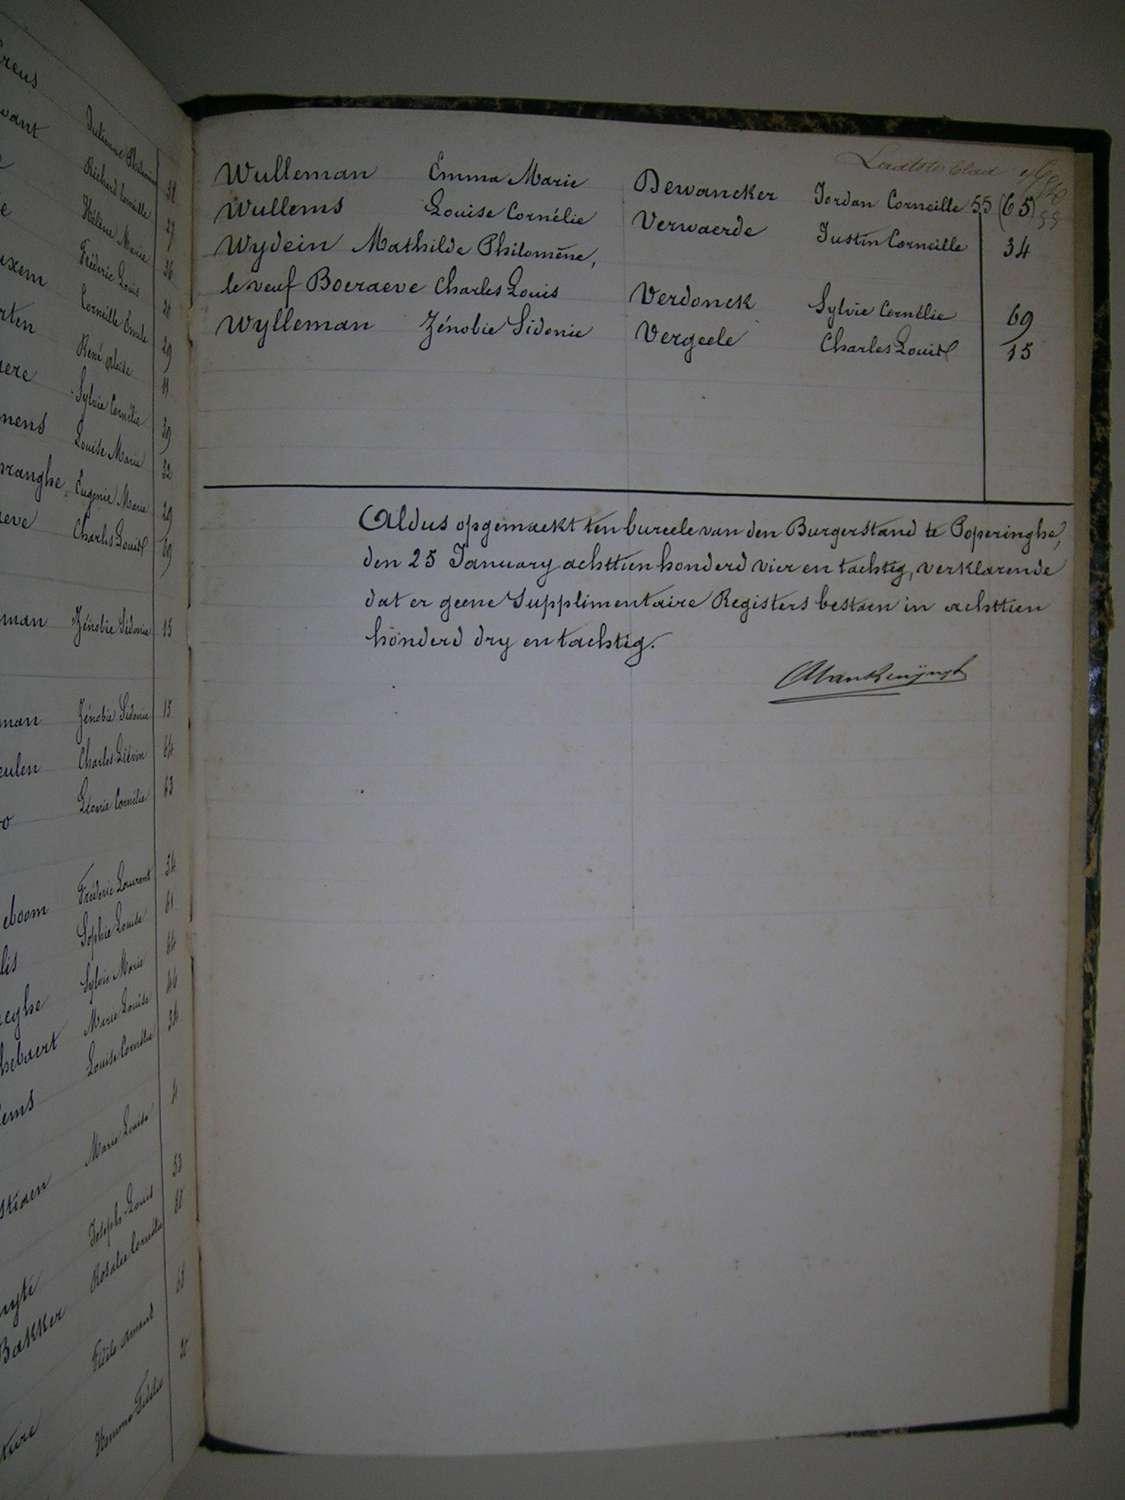 Laatste blad
Wulleman Emma Marie Dewancker Jordan Corneille 55 (65)
55
Wullems Louise Cornélie Verwaerde Justin Corneille 34
Wydein Mathilde Philomène,
le veuf Boeraeve Charles Louis Verdonck Sylvie Cornélie 69
Wylleman Zénobie Sidonie Vergeele Charles Louis 15
Aldus opgemaekt ten bureele van den Burgerstand te Poperinghe,
den 25 January achttien honderd vier en tachtig, verklarende
dat er geene Supplimentaire Registers bestaen in achttien
honderd dry en tachtig.
reus Julienne 28
want Richard Corneille 27
Hélène Marie 36
Fréderic Louis
uxem Corneille Emile 29
rten René 11
aere Sylvie Cornélie 39
mens Louise Marie 32
vranghe, Eugenie Marie 29
aeve Charles Louis 69
man Zénobie Sidonie 15
man Zénobie Sidonie 15
eulen Charles Liévin 64
Léonie Cornélie 63
eboom Fréderic Laurent 34
lis Sophie Louise 61
eyhe Sylvie Marie 64
hebaert Marie Louise 46
lems Louise Cornélie 34
Marie Louise
stiaen Joseph Louis 53
uyte Rosalie Cornélie 68
Bakker
Amand 63
Emma